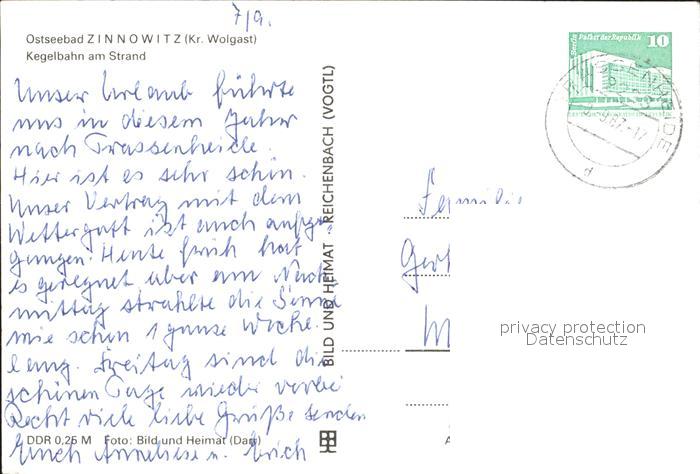 7/9.
Ostseebad ZINNOWITZ (Kr. Wolgast)
Kegelbahn am Strand
Unser Urlaub führte
uns in diesem Jahr
nach Trassenheide.
Hier ist es sehr schön.
Unser Vertrag mit dem
Wettergott ist auch aufge-
gangen. Heute früh hat
es geregnet aber am Nach-
mittag strahlte die Sonne
wie schon 1 ganze Woche
lang. Freitag sind die
schönen Tage wieder vorbei
Recht viele liebe Grüße senden
Euch Anneliese u. Erich
DDR 0,25 M Foto: Bild und Heimat (Darr)
BILD UND HEIMAT REICHENBACH (VOGTL)
Berlin Palast der Republik 10
Familie
Ger
M
privacy protection
Datenschutz
A